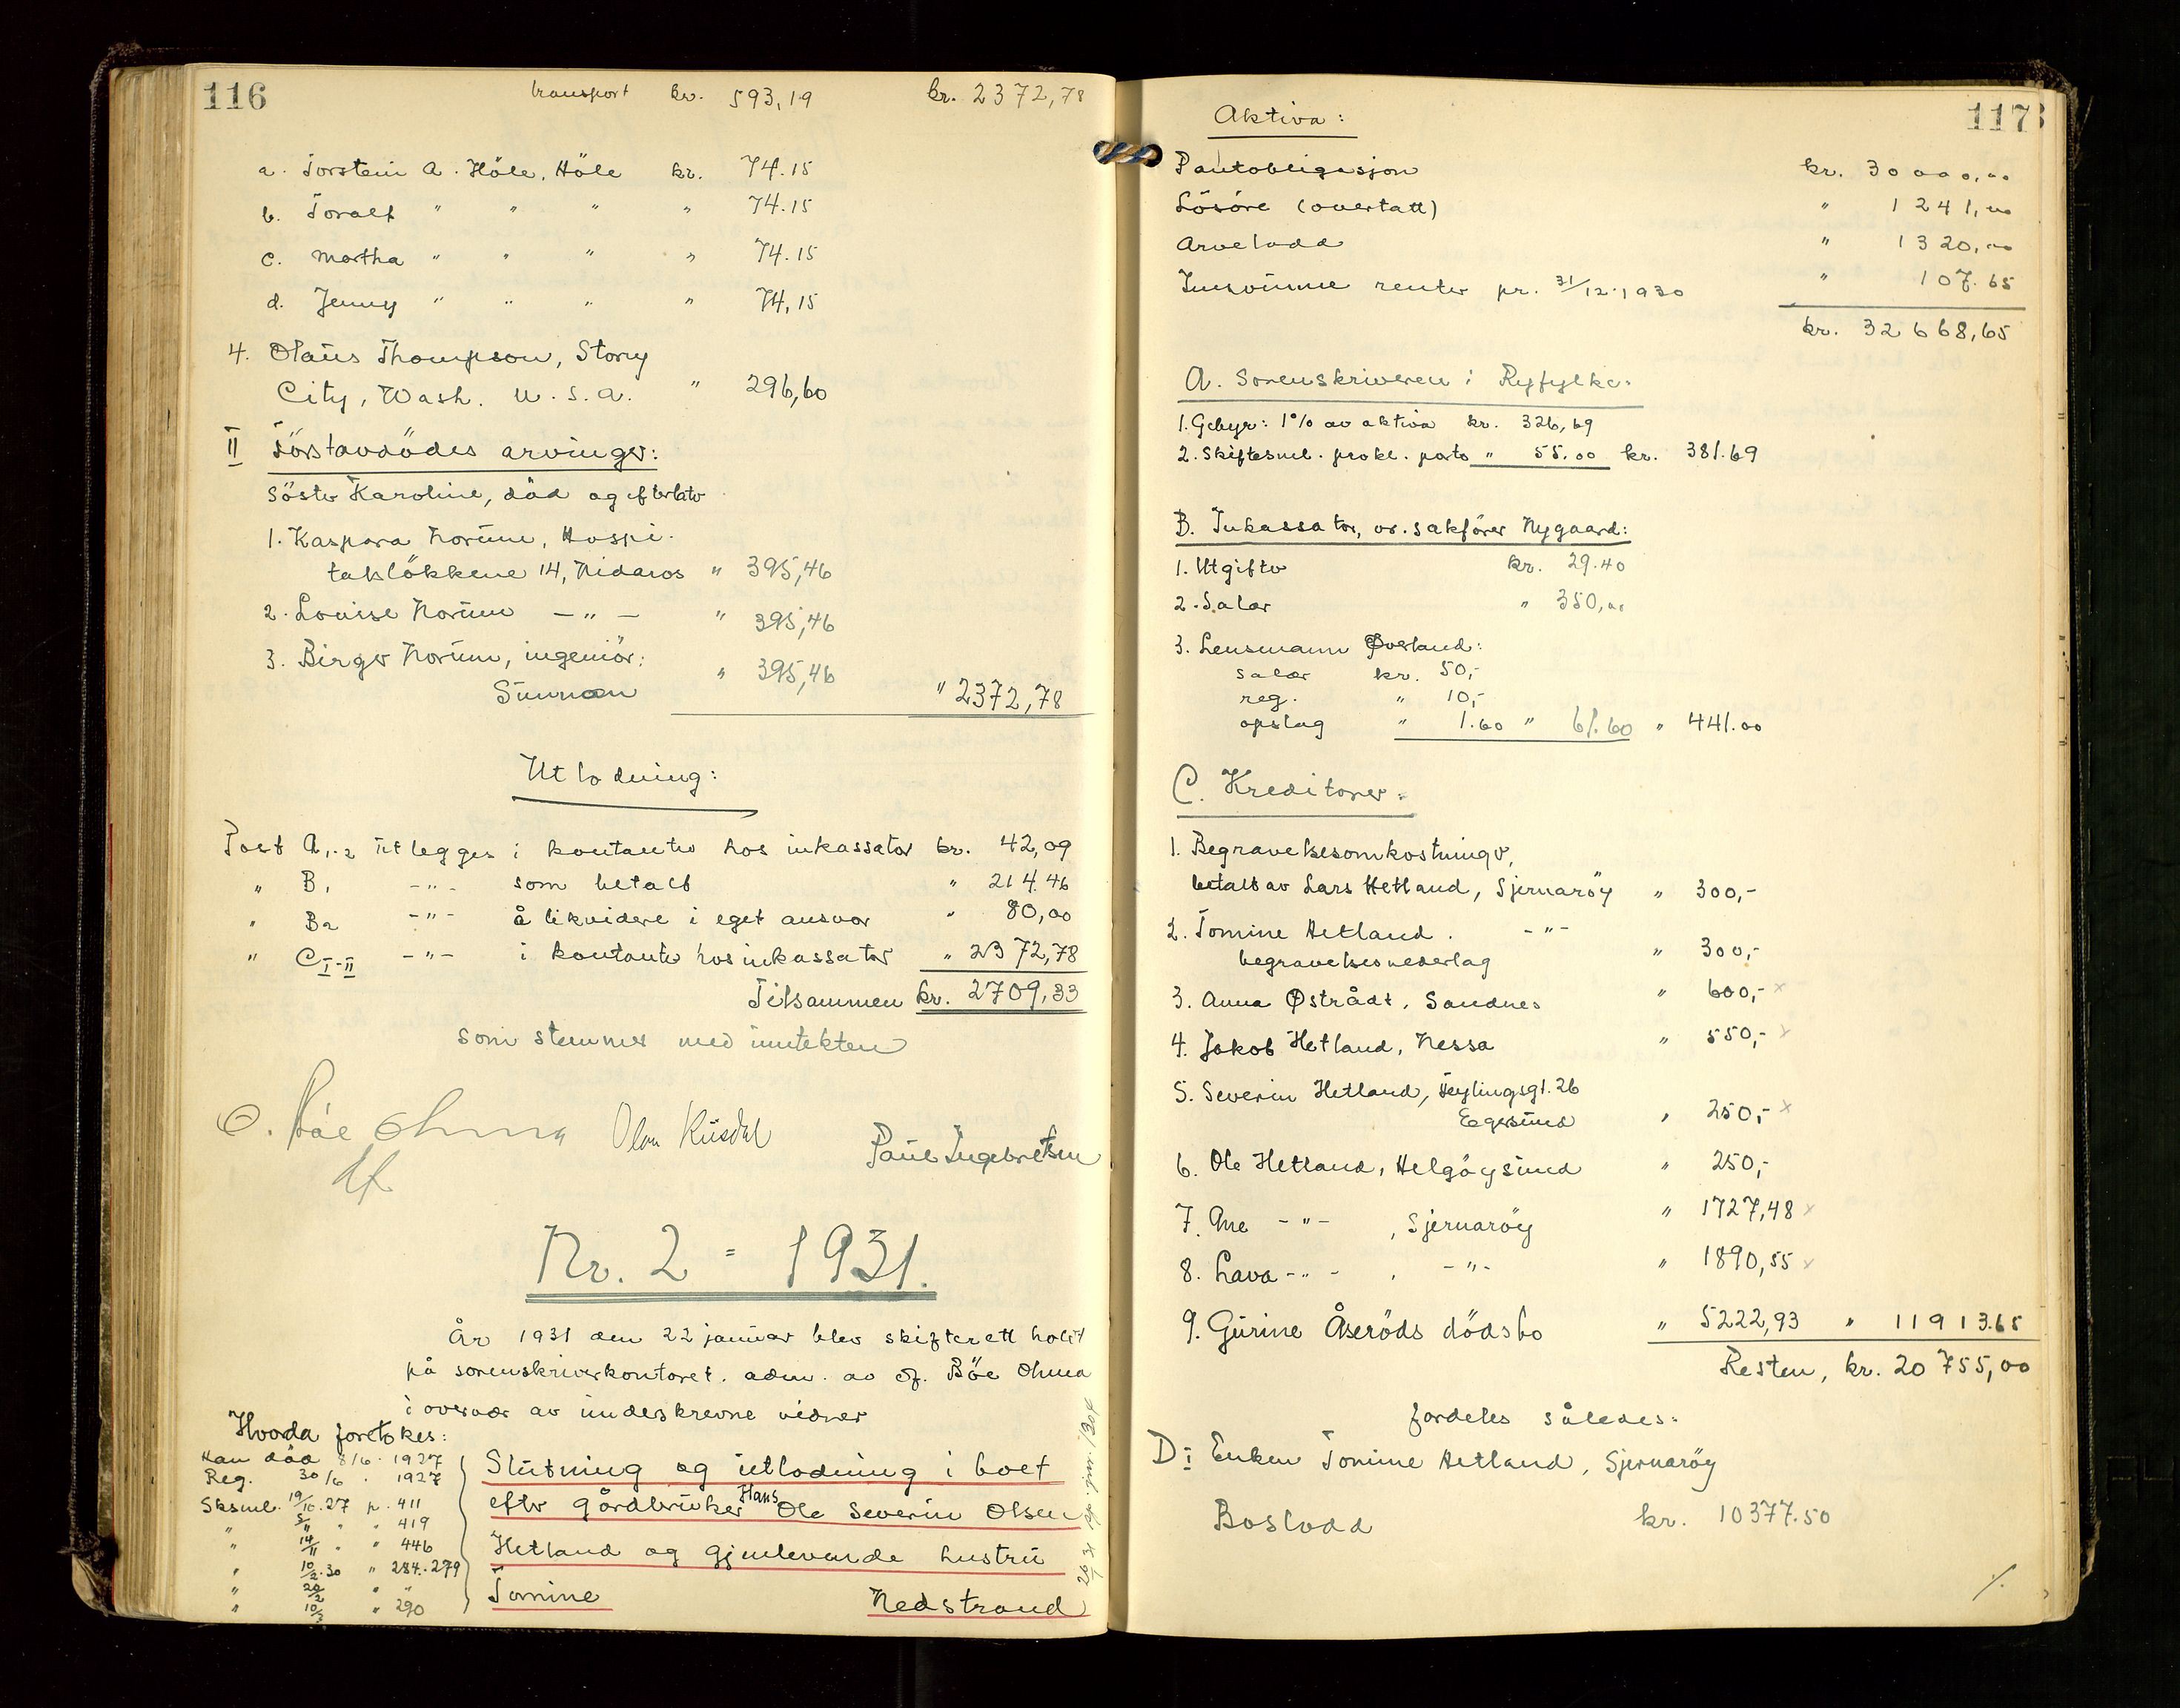 116
transport kr. 593,19 kr. 2372,78
a. Torstein A. Höle, Höle kr. 74.15
b. Toralf " " " " 74.15
c. Martha " " " " 74.15
d. Jenny " " " " 74,15
4. Olaus Thompson, Story
City, Wash. U.S.A. " 296,60
II Förstavdödes arvinger:
Söster Karoline, död og efterlatr
1. Kaspara Norum, Hospi-
talslökkene 14, Nidaros " 395,46
2. Louise Norum —"— " 395,46
3. Birger Norum, ingeniör,
Sunnan " 395,46 " 2372,78
Utlodning:
Post A1-2 utlegges i kontanter hos inkassator kr. 42,09
" B1 -"- som betalt " 214.46
" B2 -"- å likvidere i eget ansvar " 80,00
" C I-II -"- i kontanter hos inkassator " 2372,78
Tilsammen kr. 2709,33
som stemmer med inntekten
O. Böe Ohma Olav Riisdal Paul Ingebretsen
df
Nr. 2 = 1931.
År 1931 den 22 januar blev skifterett holdt
på sorenskriverkontoret. adm. av df. Böe Ohma
i overvær av underskrevne vidner
Hvorda foretokes:
Han död 8/6 . 1927
Reg. 30/6 . 1927
Sksml. 19/10.27 p. 411
" 5/11 " " 419
" 14/11 " " 446
" 10/2.30 " 284.279
" 20/2 " "
" 10/3 " 290
Slutning og utlodning i boet
efter gårdbruker Hans Ole Severin Olsen
Hetland og gjenlevende hustru
Tomine Nedstrand
117
Aktiva:
Pantobligasjon kr. 30000,00
Lösöre (overtatt) " 1241,00
Arvelodd " 1320,00
Innvunne renter pr. 31/12.1930 " 107.65
kr. 32668,65
A. Sorenskriveren i Ryfylke:
1. Gebyr: 1% av aktiva kr. 326,69
2. Skiftesml. prokl. porto " 55.00 kr. 381.69
B. Inkassator, or. sakförer Nygaard:
1. Utgifter kr. 29.40
2. Salær " 350,00
3. Lensmann Øverland:
salær kr. 50,-
reg. " 10,-
opslag " 1.60 " 61.60 " 441.00
C. Kreditorer:
1. Begravelsesomkostninger,
betalt av Lars Hetland, Sjernaröy " 300,-
2. Tomine Hetland. -"-
begravelsesnederlag " 300,-
3. Anna Østrådt, Sandnes " 600,- x
4. Jakob Hetland, Nessa " 550,- x
5. Severin Hetland, Feylingsgt. 26
Egersund " 250,- x
6. Ole Hetland, Helgöysund " 250,-
7. Ane -"- , Sjernaröy " 1727,48 x
8. Lava -"- , -"- " 1890,55 x
9. Gurine Åseröds dödsbo " 5222,93 " 11913.65
Resten, kr. 20755,00
fordeles således:
D I Enken Tomine Hetland, Sjernaröy
Boslodd kr. 10377.50
./.